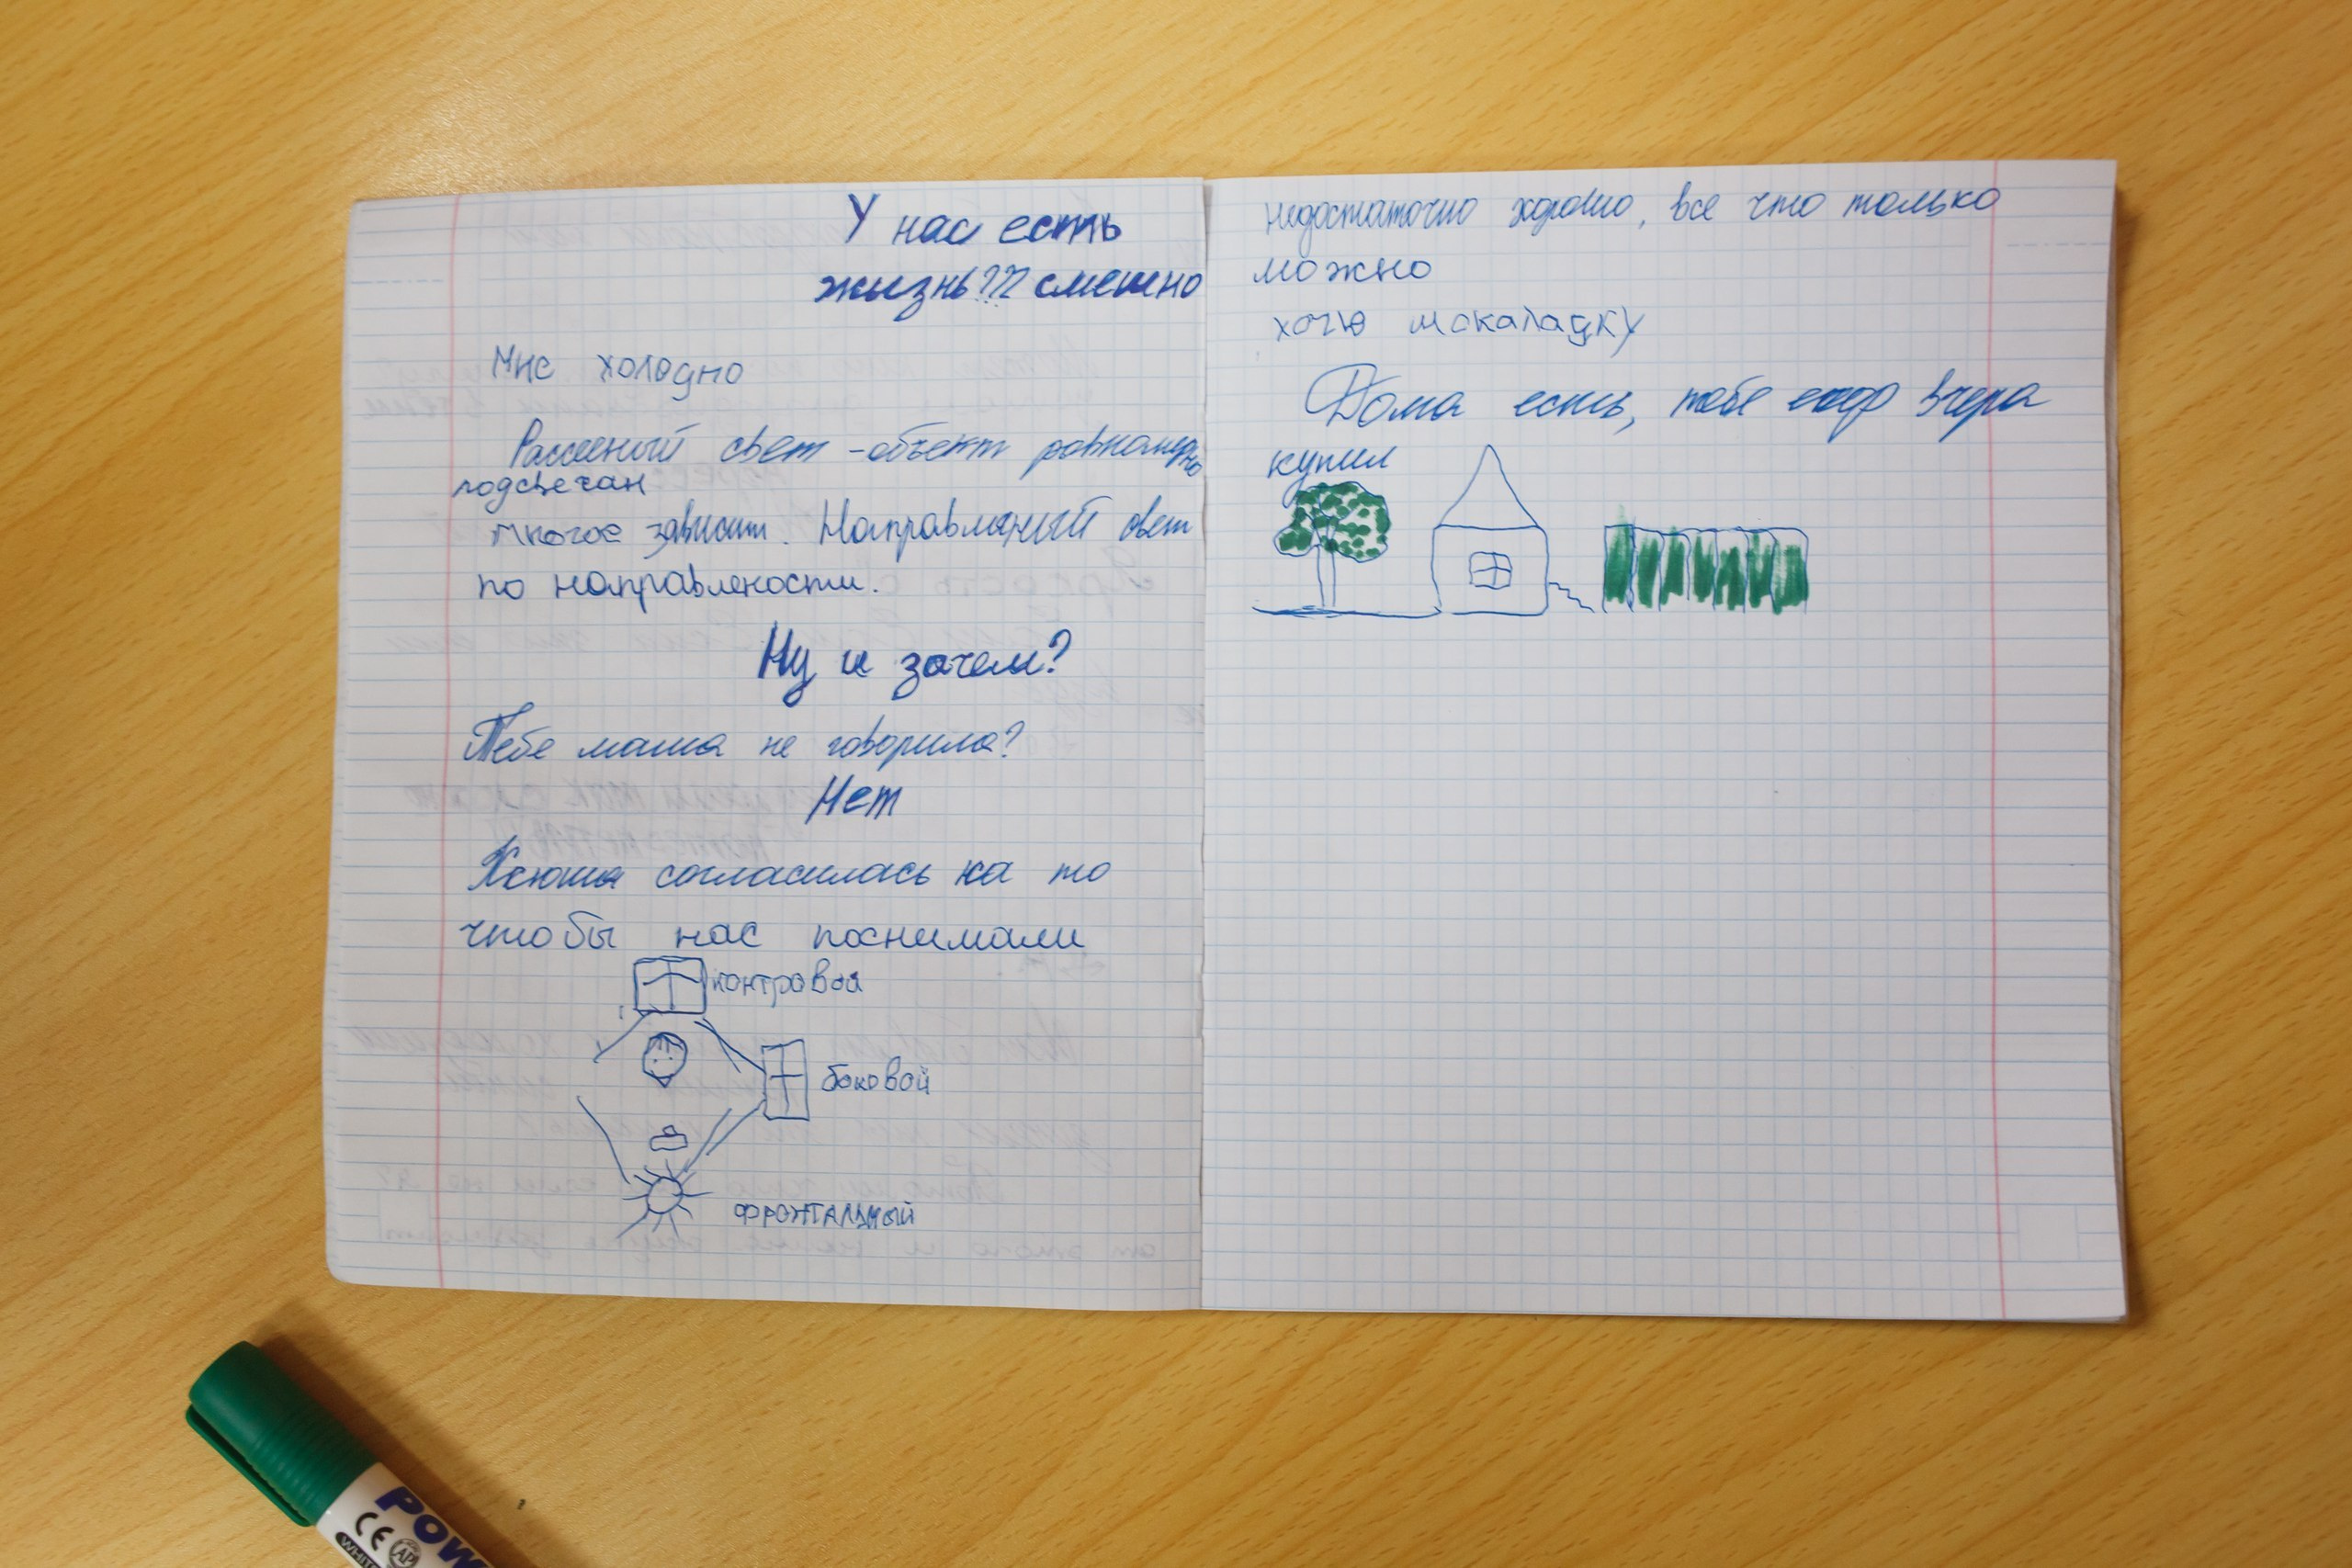 У нас есть
жизнь??? смешно
Мне холодно
Рассеный свет - объект равномерно
подсвечан
многое зависит. Направляный свет
по направлености.
Ну и зачем?
Тебе мама не говорила?
Нет
Ксюша согласилась на то
чтобы нас поснимали
контровой
боковой
фронтальный
недостаточно хорошо, все что только
можно
хочю шокаладку
Дома есть, тебе вчера
купил
POW
CE
AP
WHIT